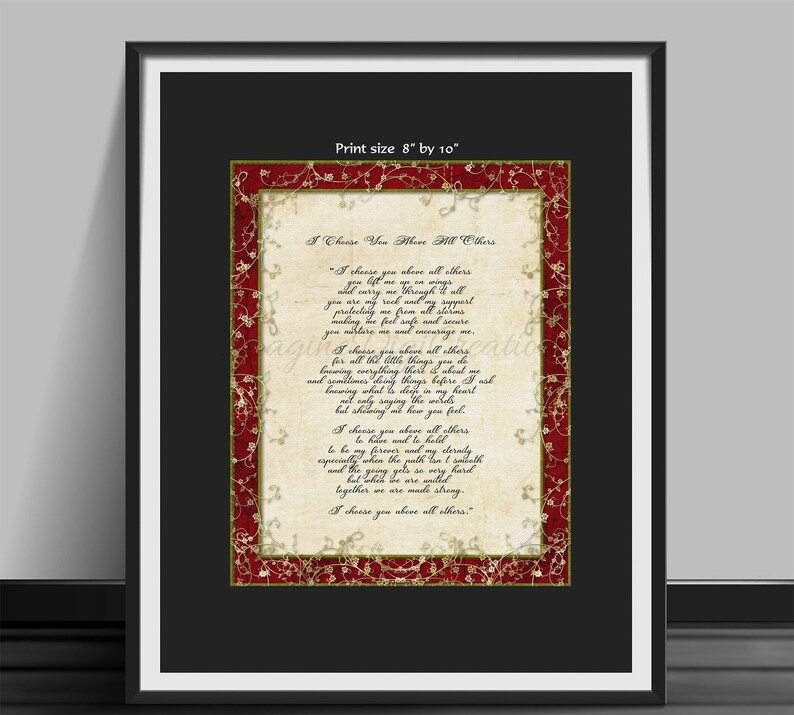 Print size 8" by 10"
I Choose You Above All Others
"I choose you above all others
you lift me up on wings
and carry me through it all
you are my rock and my support
protecting me from all storms
making me feel safe and secure
you nurture me and encourage me.
I choose you above all others
for all the little things you do
knowing everything there is about me
and sometimes doing things before I ask
knowing what is deep in my heart
not only saying the words
but showing me how you feel.
I choose you above all others
to have and to hold
to be my forever and my eternity
especially when the path isn't smooth
and the going gets so very hard
but when we are united
together we are made strong.
I choose you above all others."